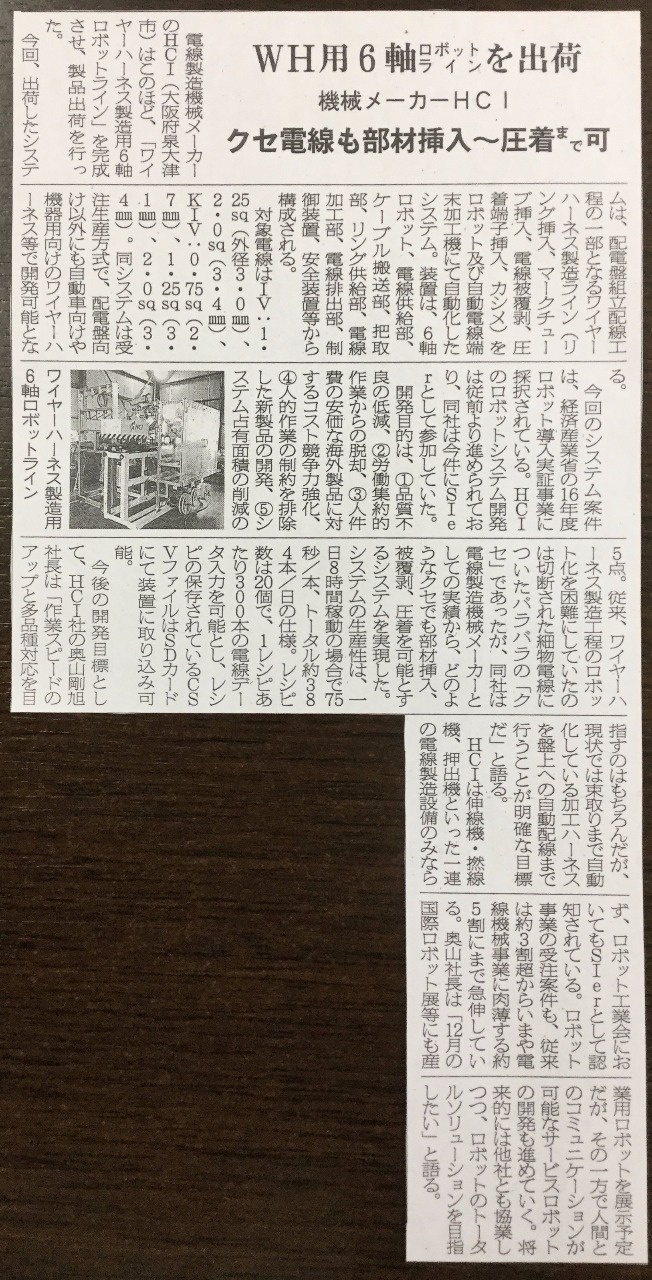 WH用6軸ロボットラインを出荷
機械メーカーHCI
クセ電線も部材挿入〜圧着まで可
電線製造機械メーカー
のHCI(大阪府泉大津
市)はこのほど、「ワイ
ヤーハーネス製造用6軸
ロボットライン」を完成
させ、製品出荷を行っ
た。
今回、出荷したシステ
ムは、配電盤組立配線工
程の一部となるワイヤー
ハーネス製造ライン(リ
ング挿入、マークチュー
ブ挿入、電線被覆剥、圧
着端子挿入、カシメ)を
ロボット及び自動電線端
末加工機にて自動化した
システム。装置は、6軸
ロボット、電線供給部、
ケーブル搬送部、把取
部、リング供給部、電線
加工部、電線排出部、制
御装置、安全装置等から
構成される。
対象電線はIV:1・
25sq(外径3・0㎜)、
2・0sq(3・4㎜)
KIV:0・75sq(2・
7㎜)、1・25sq(3・
1㎜)、2・0sq(3・
4㎜)。同システムは受
注生産方式で、配電盤向
け以外にも自動車向けや
機器用向けのワイヤーハ
ーネス等で開発可能とな
る。
今回のシステム案件
は、経済産業省の16年度
ロボット導入実証事業に
採択されている。HCI
のロボットシステム開発
は従前より進められてお
り、同社は今件にSIe
rとして参加していた。
開発目的は、①品質不
良の低減、②労働集約的
作業からの脱却、③人件
費の安価な海外製品に対
するコスト競争力強化、
④人的作業の制約を排除
した新製品の開発、⑤シ
ステム占有面積の削減の
ワイヤーハーネス製造用
6軸ロボットライン
5点。従来、ワイヤーハ
ーネス製造工程のロボッ
ト化を困難にしていたの
は切断された細物電線に
ついたバラバラの「ク
セ」であったが、同社は
電線製造機械メーカーと
しての実績から、どのよ
うなクセでも部材挿入、
被覆剥、圧着を可能とす
るシステムを実現した。
システムの生産性は、一
日8時間稼動の場合で75
秒/本、トータル約38
4本/日の仕様。レシピ
数は20個で、1レシピあ
たり300本の電線デー
タ入力を可能とし、レシ
ピの保存されているCS
VファイルはSDカード
にて装置に取り込み可
能。
今後の開発目標とし
て、HCI社の奥山剛旭
社長は「作業スピードの
アップと多品種対応を目
指すのはもちろんだが、
現状では束取りまで自動
化している加工ハーネス
を盤上への自動配線まで
行うことが明確な目標
だ」と語る。
HCIは伸線機・撚線
機、押出機といった一連
の電線製造設備のみなら
ず、ロボット工業会にお
いてもSIerとして認
知されている。ロボット
事業の受注案件も、従来
は約3割超からいまや電
線機械事業に肉薄する約
5割にまで急伸してい
る。奥山社長は「12月の
国際ロボット展等にも産
業用ロボットを展示予定
だが、その一方で人間と
のコミュニケーションが
可能なサービスロボット
の開発も進めていく。将
来的には他社とも協業し
つつ、ロボットのトータ
ルソリューションを目指
したい」と語る。